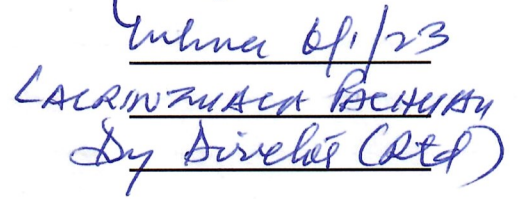 6/1/23
LALRINZUALA PACHUAU
Dy Director (Rtd)